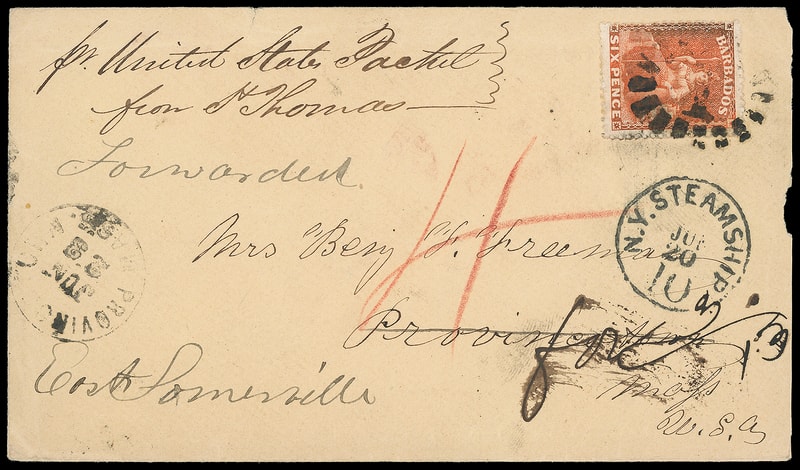 pr. United States Packet
from St Thomas
BARBADOS
SIX PENCE
Forwarded.
N.Y. STEAMSHIP
JUN
20
10
Mrs Benj. F. Freeman
Provincetown
Mass
U.S.A
East Somerville
PROVINCETOWN MASS.
JUN
22
4